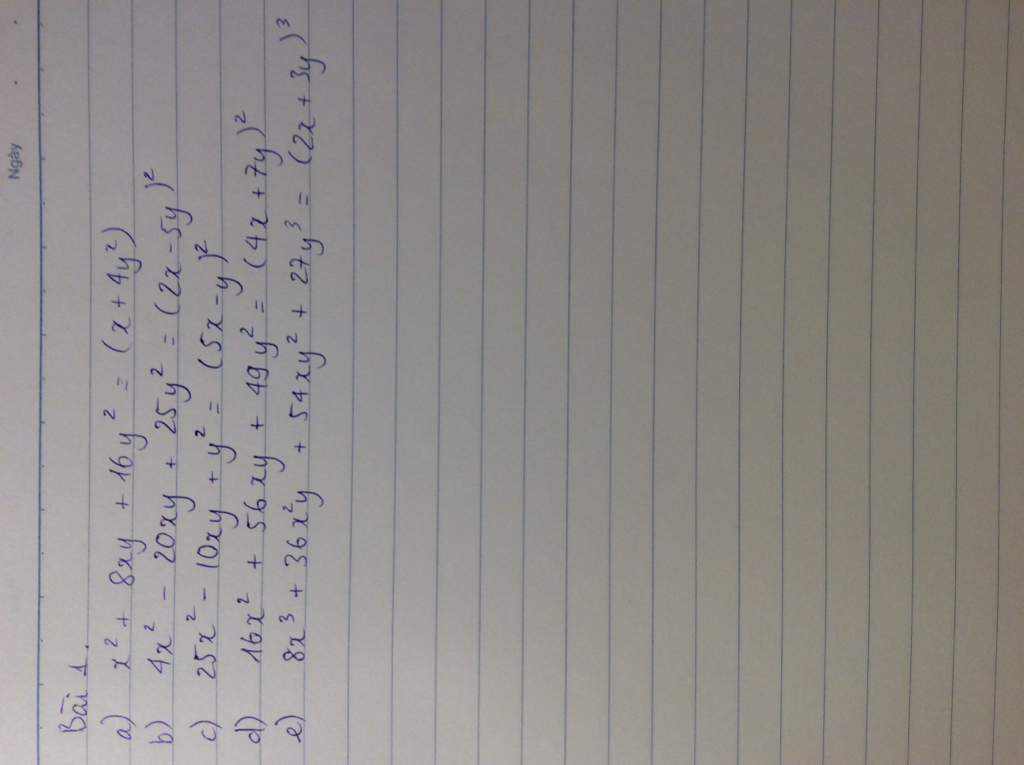 Ngày . .
Bài 1.
a) x² + 8xy + 16y² = (x + 4y²)
b) 4x² - 20xy + 25y² = (2x - 5y)²
c) 25x² - 10xy + y² = (5x - y)²
d) 16x² + 56xy + 49y² = (4x + 7y)²
e) 8x³ + 36x²y + 54xy² + 27y³ = (2x + 3y)³